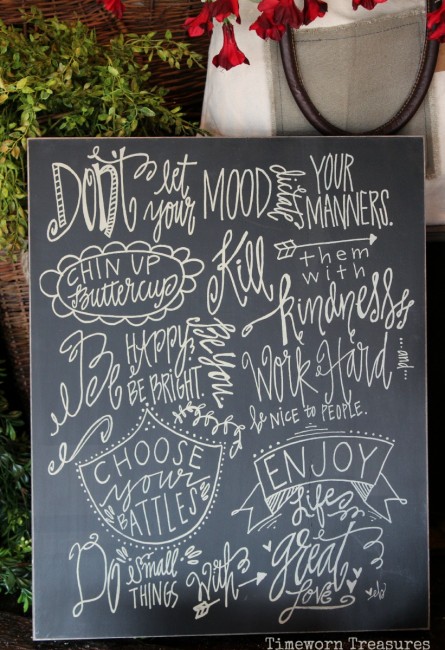 Don't let your MOOD dictate YOUR MANNERS.
CHIN UP Buttercup
Kill them with kindness
Be HAPPY, BE BRIGHT Be you.
Work Hard ...and...
be NICE TO PEOPLE.
CHOOSE your BATTLES
ENJOY life
Do small THINGS with great Love
Timeworn Treasures